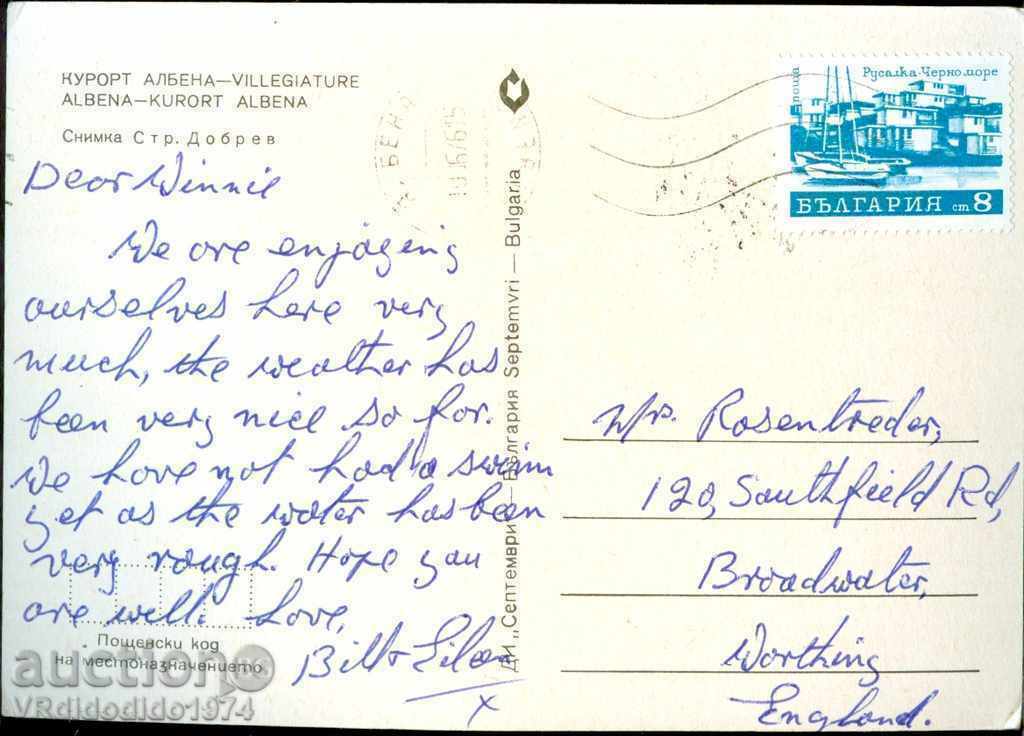 КУРОРТ АЛБЕНА—VILLEGIATURE
ALBENA—KURORT ALBENA
Снимка Стр. Добрев
Dear Winnie
We are enjoying
ourselves here very
much, the weather has
been very nice so far.
We have not had a swim
yet as the water has been
very rough. Hope you
are well. Love,
Bill + Eileen
x
Пощенски код
на местоназначението
ДИ „Септември“ — България Septemvri — Bulgaria
поща
Русалка-Черно море
БЪЛГАРИЯ ст 8
Mrs. Rosentreder,
120, Southfield Rd,
Broadwater,
Worthing
England.
auction
VRdidodido1974